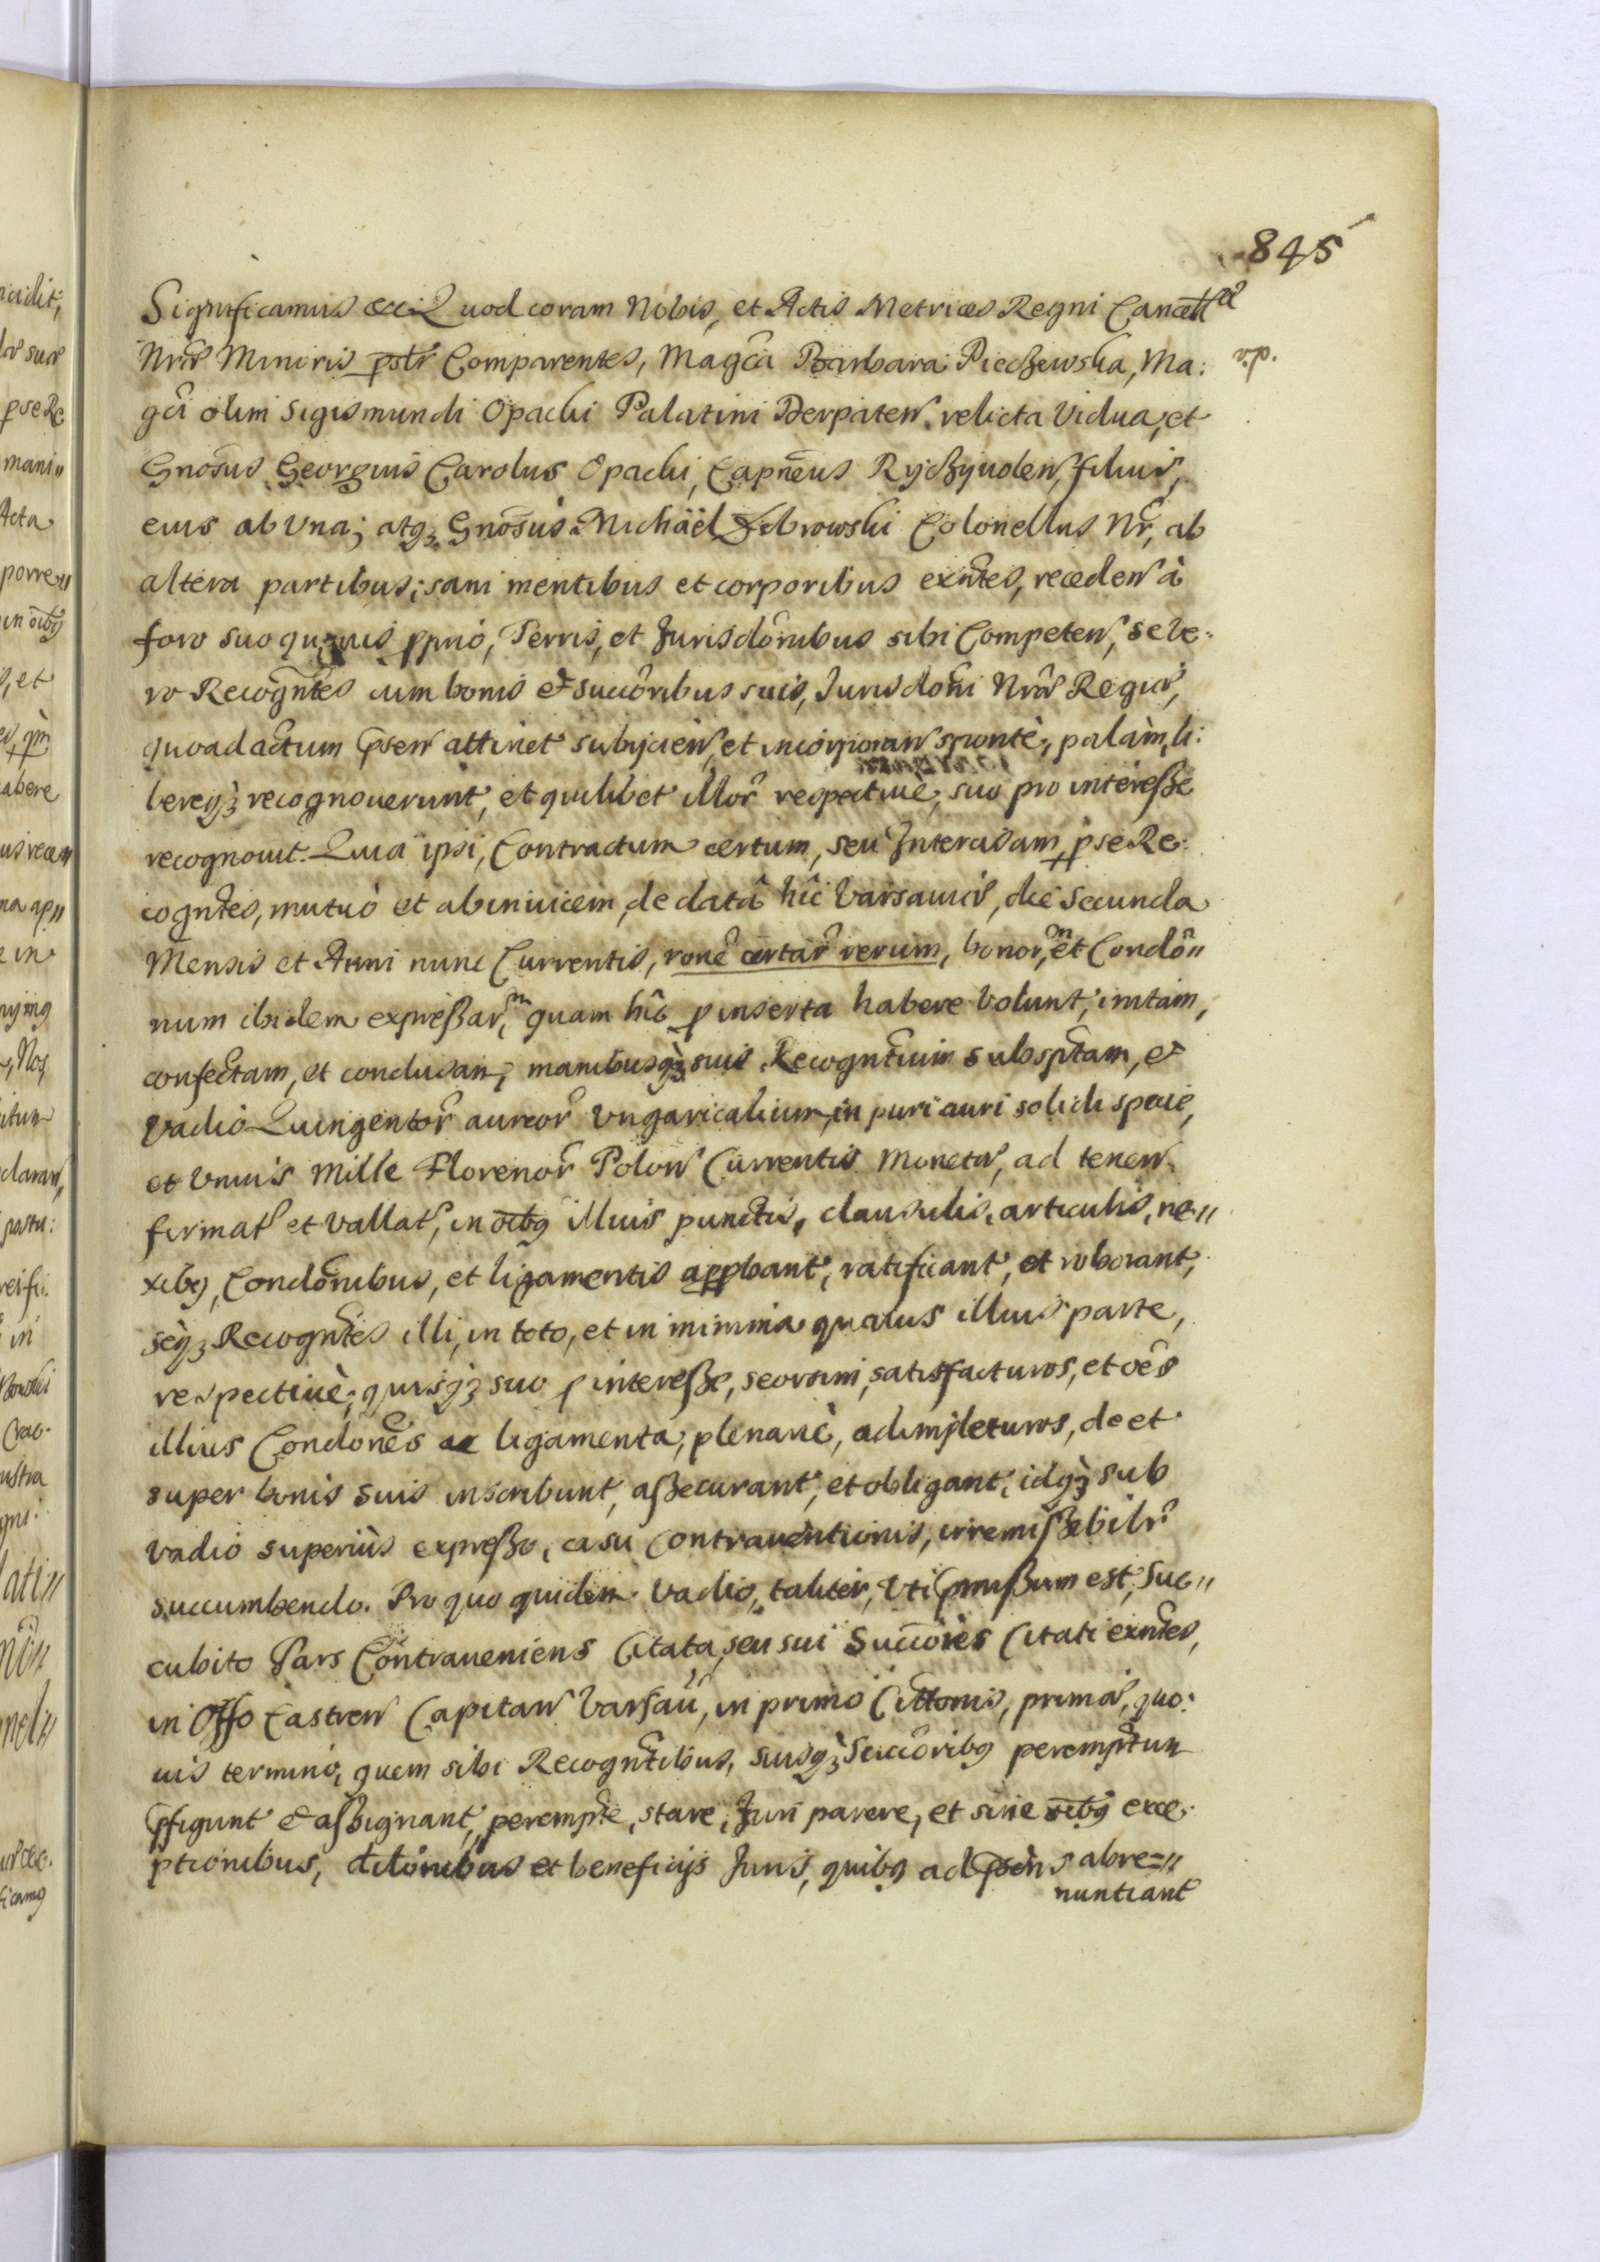 845
Significamus &c. Quod coram Nobis, et Actis Metrices Regni Cancellae
Nrae Minoris pstr Comparentes, Magca Barbara Pieczewska, Ma:
gci olim Sigismundi Opacki Palatini Derpaten. relicta Vidua, et
v.p.
Gnosus Georgius Carolus Opacki, Capneus Ryczyuolen, filius,
eius ab Vna; atq3 Gnosus Michaël Debrowski Colonellus Nr, ab
altera partibus; sani mentibus et corporibus exntes, receden à
foro suo quouis pprio, Terris, et Jurisdonibus sibi Competen, se ve:
ro Recogntes cum bonis et succoribus suis, Jurisdoni Nrae Regiae,
quoad actum psen attinet subijcien, et incorporan sponte, palàm, li:
bereq3 recognouerunt, et quilibet illor respectiuè, suo pro interesse
recognouit. Quia ipsi, Contractum certum, seu Intercisam, p se Re:
cogntes, mutuò et abinuicem, de datâ hîc Varsauiae, die Secunda
Mensis et Anni nunc Currentis, rone certar rerum, bonor, et Condo"
num ibidem expressar, quam hîc p inserta habere volunt, initam,
confectam, et conclusam, manibusq3 suis Recogntium subsptam, et
vadio Quingentor aureor Vngaricalium, in puri auri solidi specie,
et Vnius Mille Florenor Polon Currentis Monetae, ad tenen.
firmat et vallat, in oibq illius punctis, clausulis, articulis, ne"
xibq, Condonibus, et ligamentis approbant, ratificant, et roborant,
seq3 Recogntes illi, in toto, et in minima quauis illius parte,
respectiuè, quisq3 suo p interesse, seorsim, satisfacturos, et oes
illius Condones ac ligamenta, plenariè, adimpleturos, de et
super bonis suis inscribunt, assecurant, et obligant, idq3 sub
vadio superiùs expresso, casu contrauentionis, irremissibilr
succumbendo. Pro quo quidem vadio, taliter, vti pmissum est, suc"
cubito Pars Contraueniens Citata, seu sui Succores Citati exntes,
in Offo Castren Capitan Varsau, in primo Cittonis, primae, quo:
uis termino, quem sibi Recogntibus, suisq3 Succoribq peremptun
pfigunt et assignant, perempte, stare, Juri parere, et sine oibq exce:
ptionibus, dilonibus et beneficijs Juris, quibq ad psens abre="
nuntiant